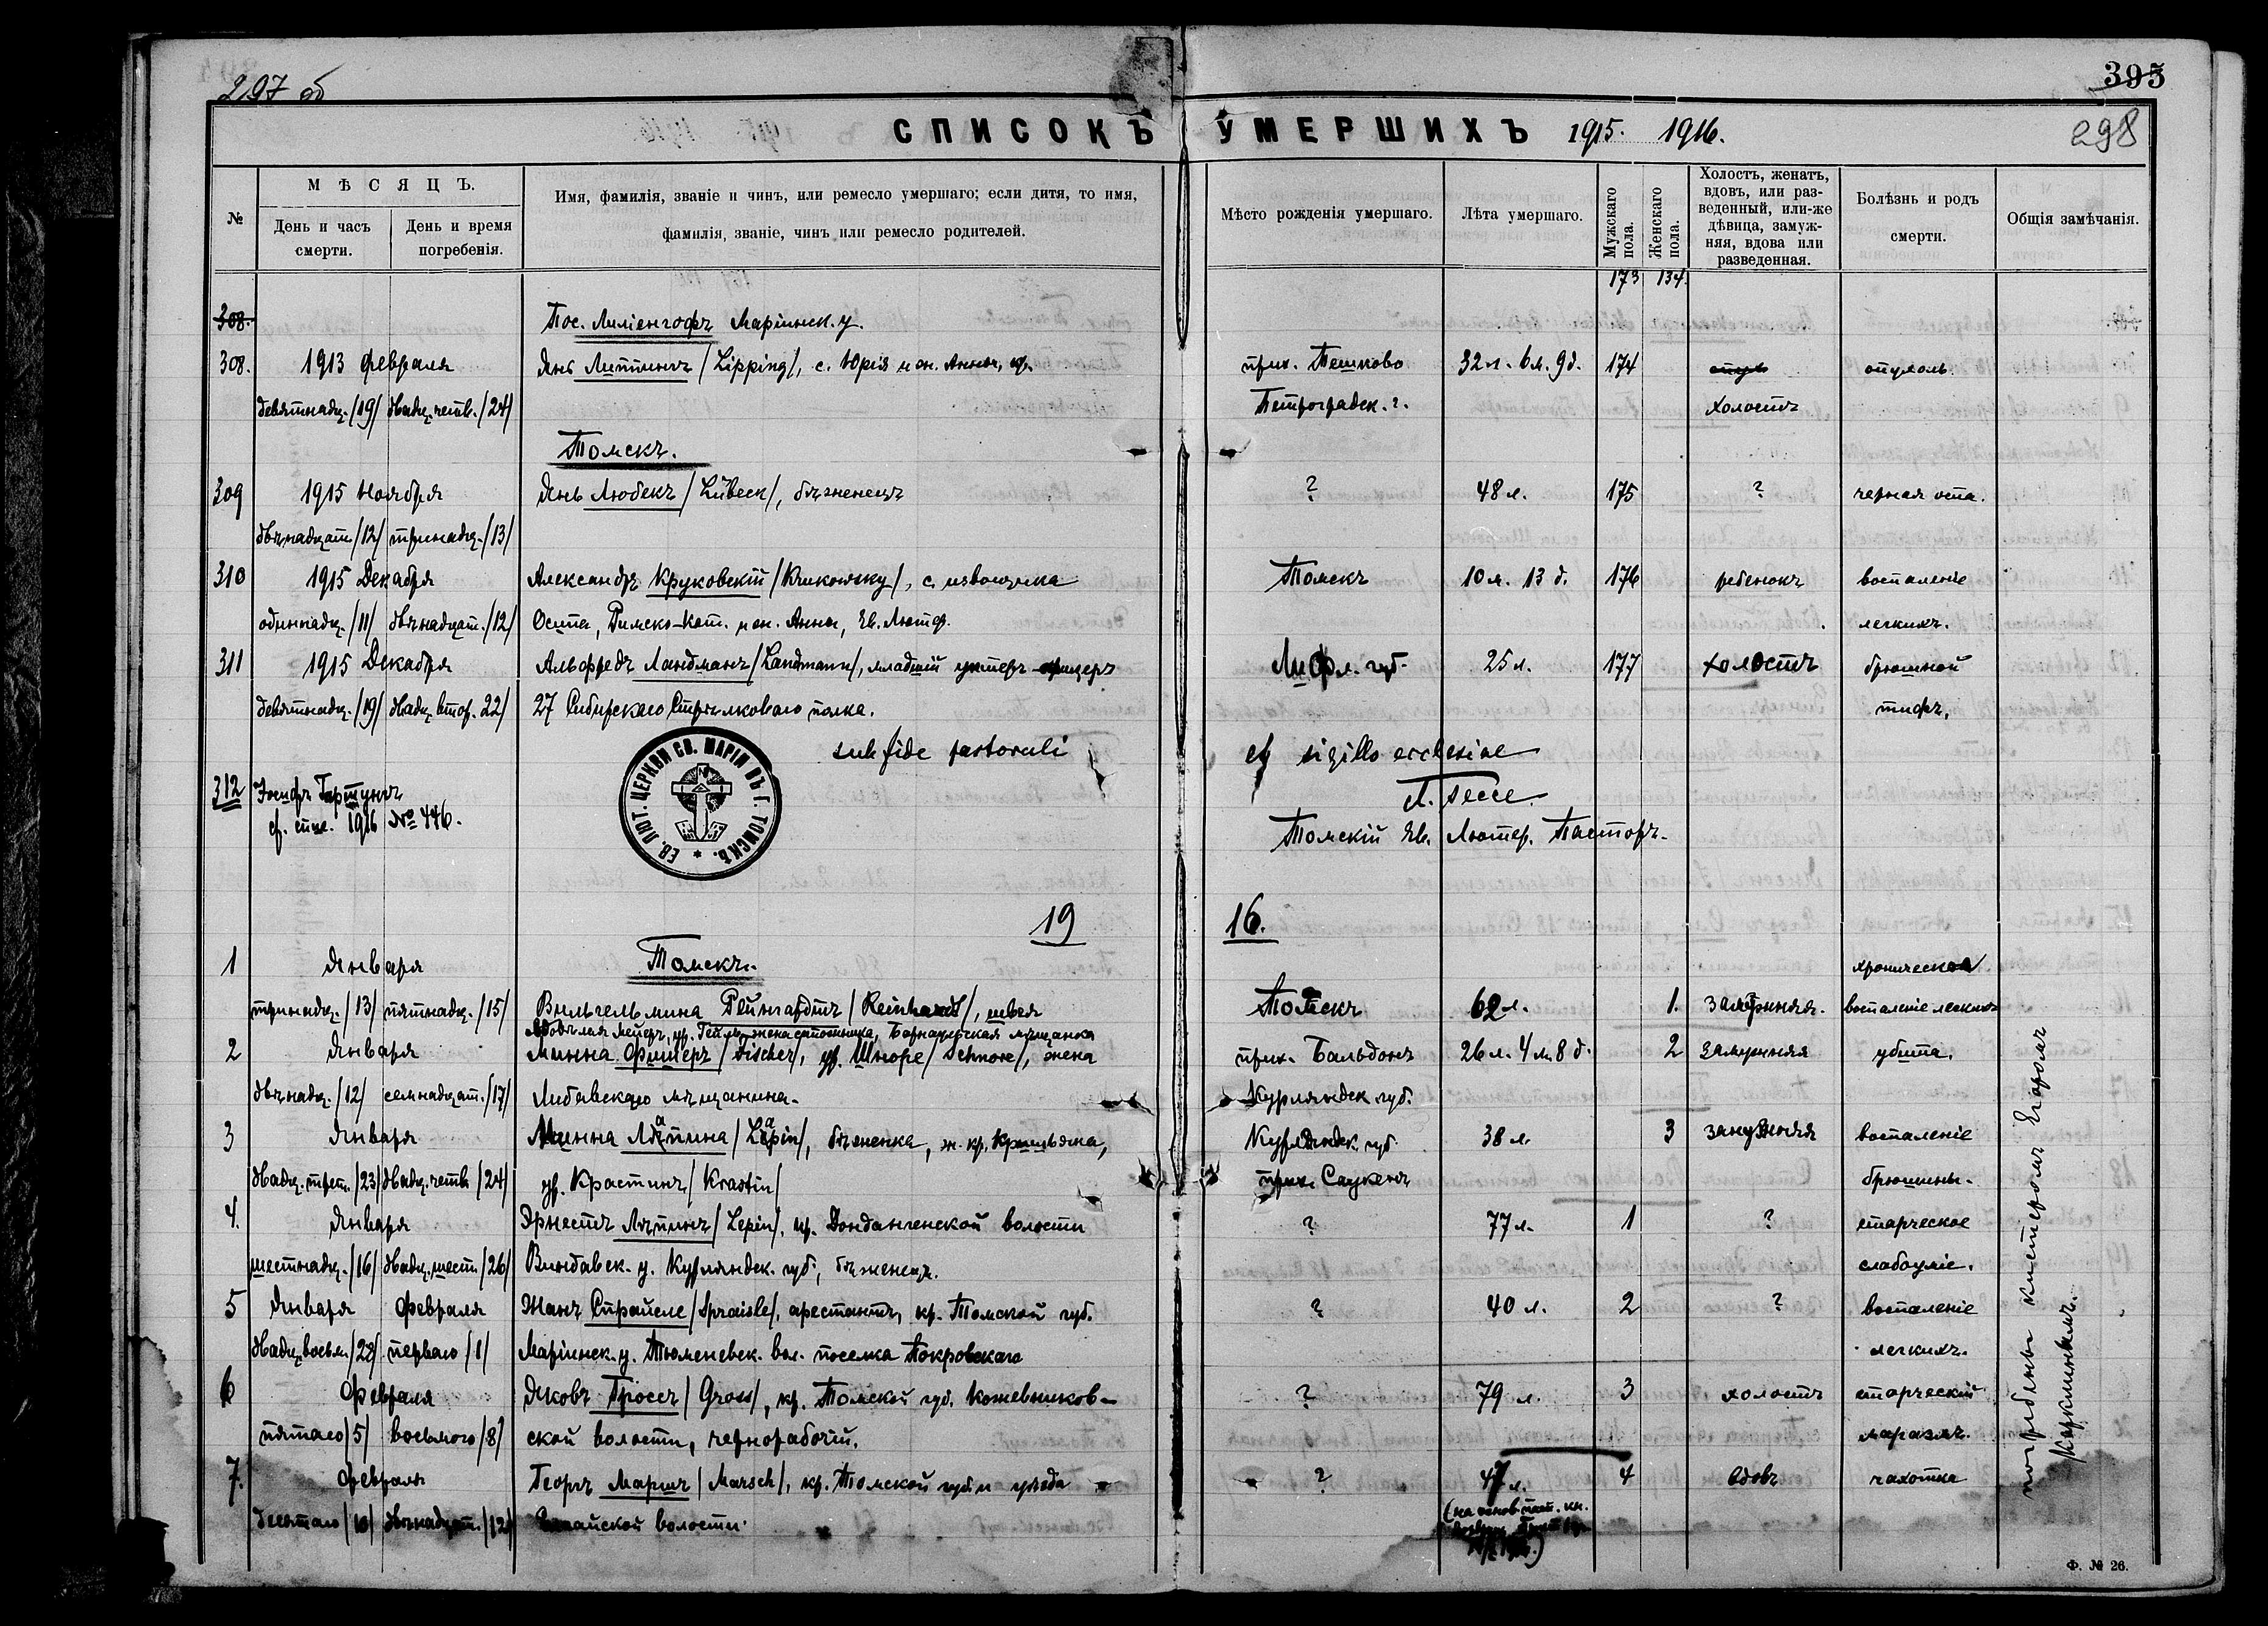 297 об
395
298
СПИСОКЪ УМЕРШИХЪ 1915. 1916.
№
МѢСЯЦЪ.
День и часъ смерти.
День и время погребенія.
Имя, фамилія, званіе и чинъ, или ремесло умершаго; если дитя, то имя,
фамилія, званіе, чинъ или ремесло родителей.
Мѣсто рожденія умершаго.
Лѣта умершаго.
Мужскаго пола.
Женскаго пола.
Холостъ, женатъ,
вдовъ, или раз-
веденный, или-же
дѣвица, замуж-
няя, вдова или
разведенная.
Болѣзнь и родъ
смерти.
Общія замѣчанія.
173 134.
308. Пос. Лиліенгофъ Маріинск. у.
308. 1913 Февраля Янъ Липпингъ /Lipping/, с. Юрія и он. Анны, кр. прих. Пешково 32 л. 6 м. 9 д. 174 опухоль
девятнадц. /19/ двадц. четв. /24/ Петроградск. г. холостъ
Томскъ.
309 1915 Ноября Янъ Любекъ /Lübeck/, бѣженецъ ? 48 л. 175 ? черная оспа.
двѣнадцат. /12/ тринадц. /13/
310 1915 Декабря Александръ Круковскій /Krukowsky/, с. извощика Томскъ 10 м. 13 д. 176 ребенокъ воспаленіе
одиннадц. /11/ двѣнадцат. /12/ Осипа, Римско-кат. и он. Анны, Ев. Лютер. легкихъ.
311 1915 Декабря Альфредъ Ландманъ /Landmann/, младшій унтеръ-офицеръ Лифл. губ. 25 л. 177 холостъ брюшной
девятнадц. /19/ двадц. втор. 22/ 27 Сибирскаго Стрѣлковаго полка. тифъ.
sub fide pastorali et sigillo ecclesiae
ЕВ. ЛЮТ. ЦЕРКВИ СВ. МАРІИ ВЪ Г. ТОМСКѢ.
312 Іосифъ Гартунгъ
ср. спис. 1916 № 446.
Томскій Ев. Лютер. Пасторъ.
19 16.
1 Января Томскъ. хроническое
тринадц. /13/ пятнадц. /15/ Вильгельмина Рейнгардтъ /Reinhardt/, швея Томскъ 62 л. 1. замужняя. воспаленіе легкихъ
жена сапожника, Барнаульская мѣщанка
2 Января Минна Фишеръ /Fischer/, ур. Шноре /Schnore/, жена прих. Бальдонъ 26 л. 4 м. 8 д. 2 замужняя убита.
двѣнадц. /12/ семнадцат. /17/ Либавскаго мѣщанина. Курляндск. губ.
3 Января Минна Лапина /Lapin/, бѣженка, ж. кр. Кришьяна, Курляндск. губ. 38 л. 3 замужняя воспаленіе
двадц. трет. /23/ двадц. четв. /24/ ур. Крастинъ /Krastin/ прих. Саукенъ брюшины.
4. Января Эрнестъ Лѣпинъ /Lepin/, кр. Дондангенской волости ? 77 л. 1 ? старческое
шестнадц. /16/ двадц. шест. /26/ Виндавск. у. Курляндск. губ., бѣженецъ. слабоуміе.
5 Января Февраля Жанъ Спрайсле /Spraisle/, арестантъ, кр. Томской губ. ? 40 л. 2 ? воспаленіе
двадц. восьм. /28/ перваго /1/ Маріинск. у. Тюменевск. вол. поселка Покровскаго легкихъ.
6 Февраля Яковъ Гроссъ /Gross/, кр. Томской губ. Кожевников- ? 79 л. 3 холостъ старческій
пятаго /5/ восьмого /8/ ской волости, чернорабочій. маразмъ.
7. Февраля Георгъ Маршъ /Marsch/, кр. Томской губ. и уѣзда ? 47 л. 4 вдовъ чахотка
десятаго /10/ двѣнадцат. /12/ волости.
погребены кистеромъ Егоромъ
Ф. № 26.